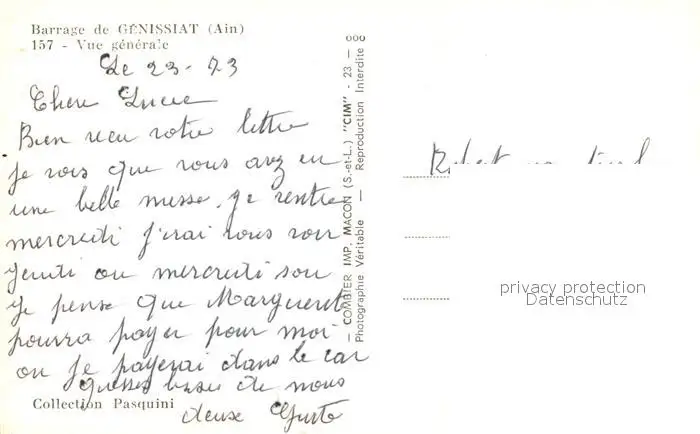 Barrage de GÉNISSIAT (Ain)
157 - Vue générale
Le 23-73
Chere Lucie
Bien recu votre lettre
je vois que vous avez eu
une belle messe. je rentre
mercredi j'irai vous voir
jeudi ou mercredi soir
je pense que Marguerit
pourra payer pour moi
ou je payerai dans le car
baisé de nous
deux
Collection Pasquini
— COMBIER IMP. MACON (S.-et-L.) "CIM" - 23 — 000
Photographie Véritable — Reproduction Interdite
privacy protection
Datenschutz